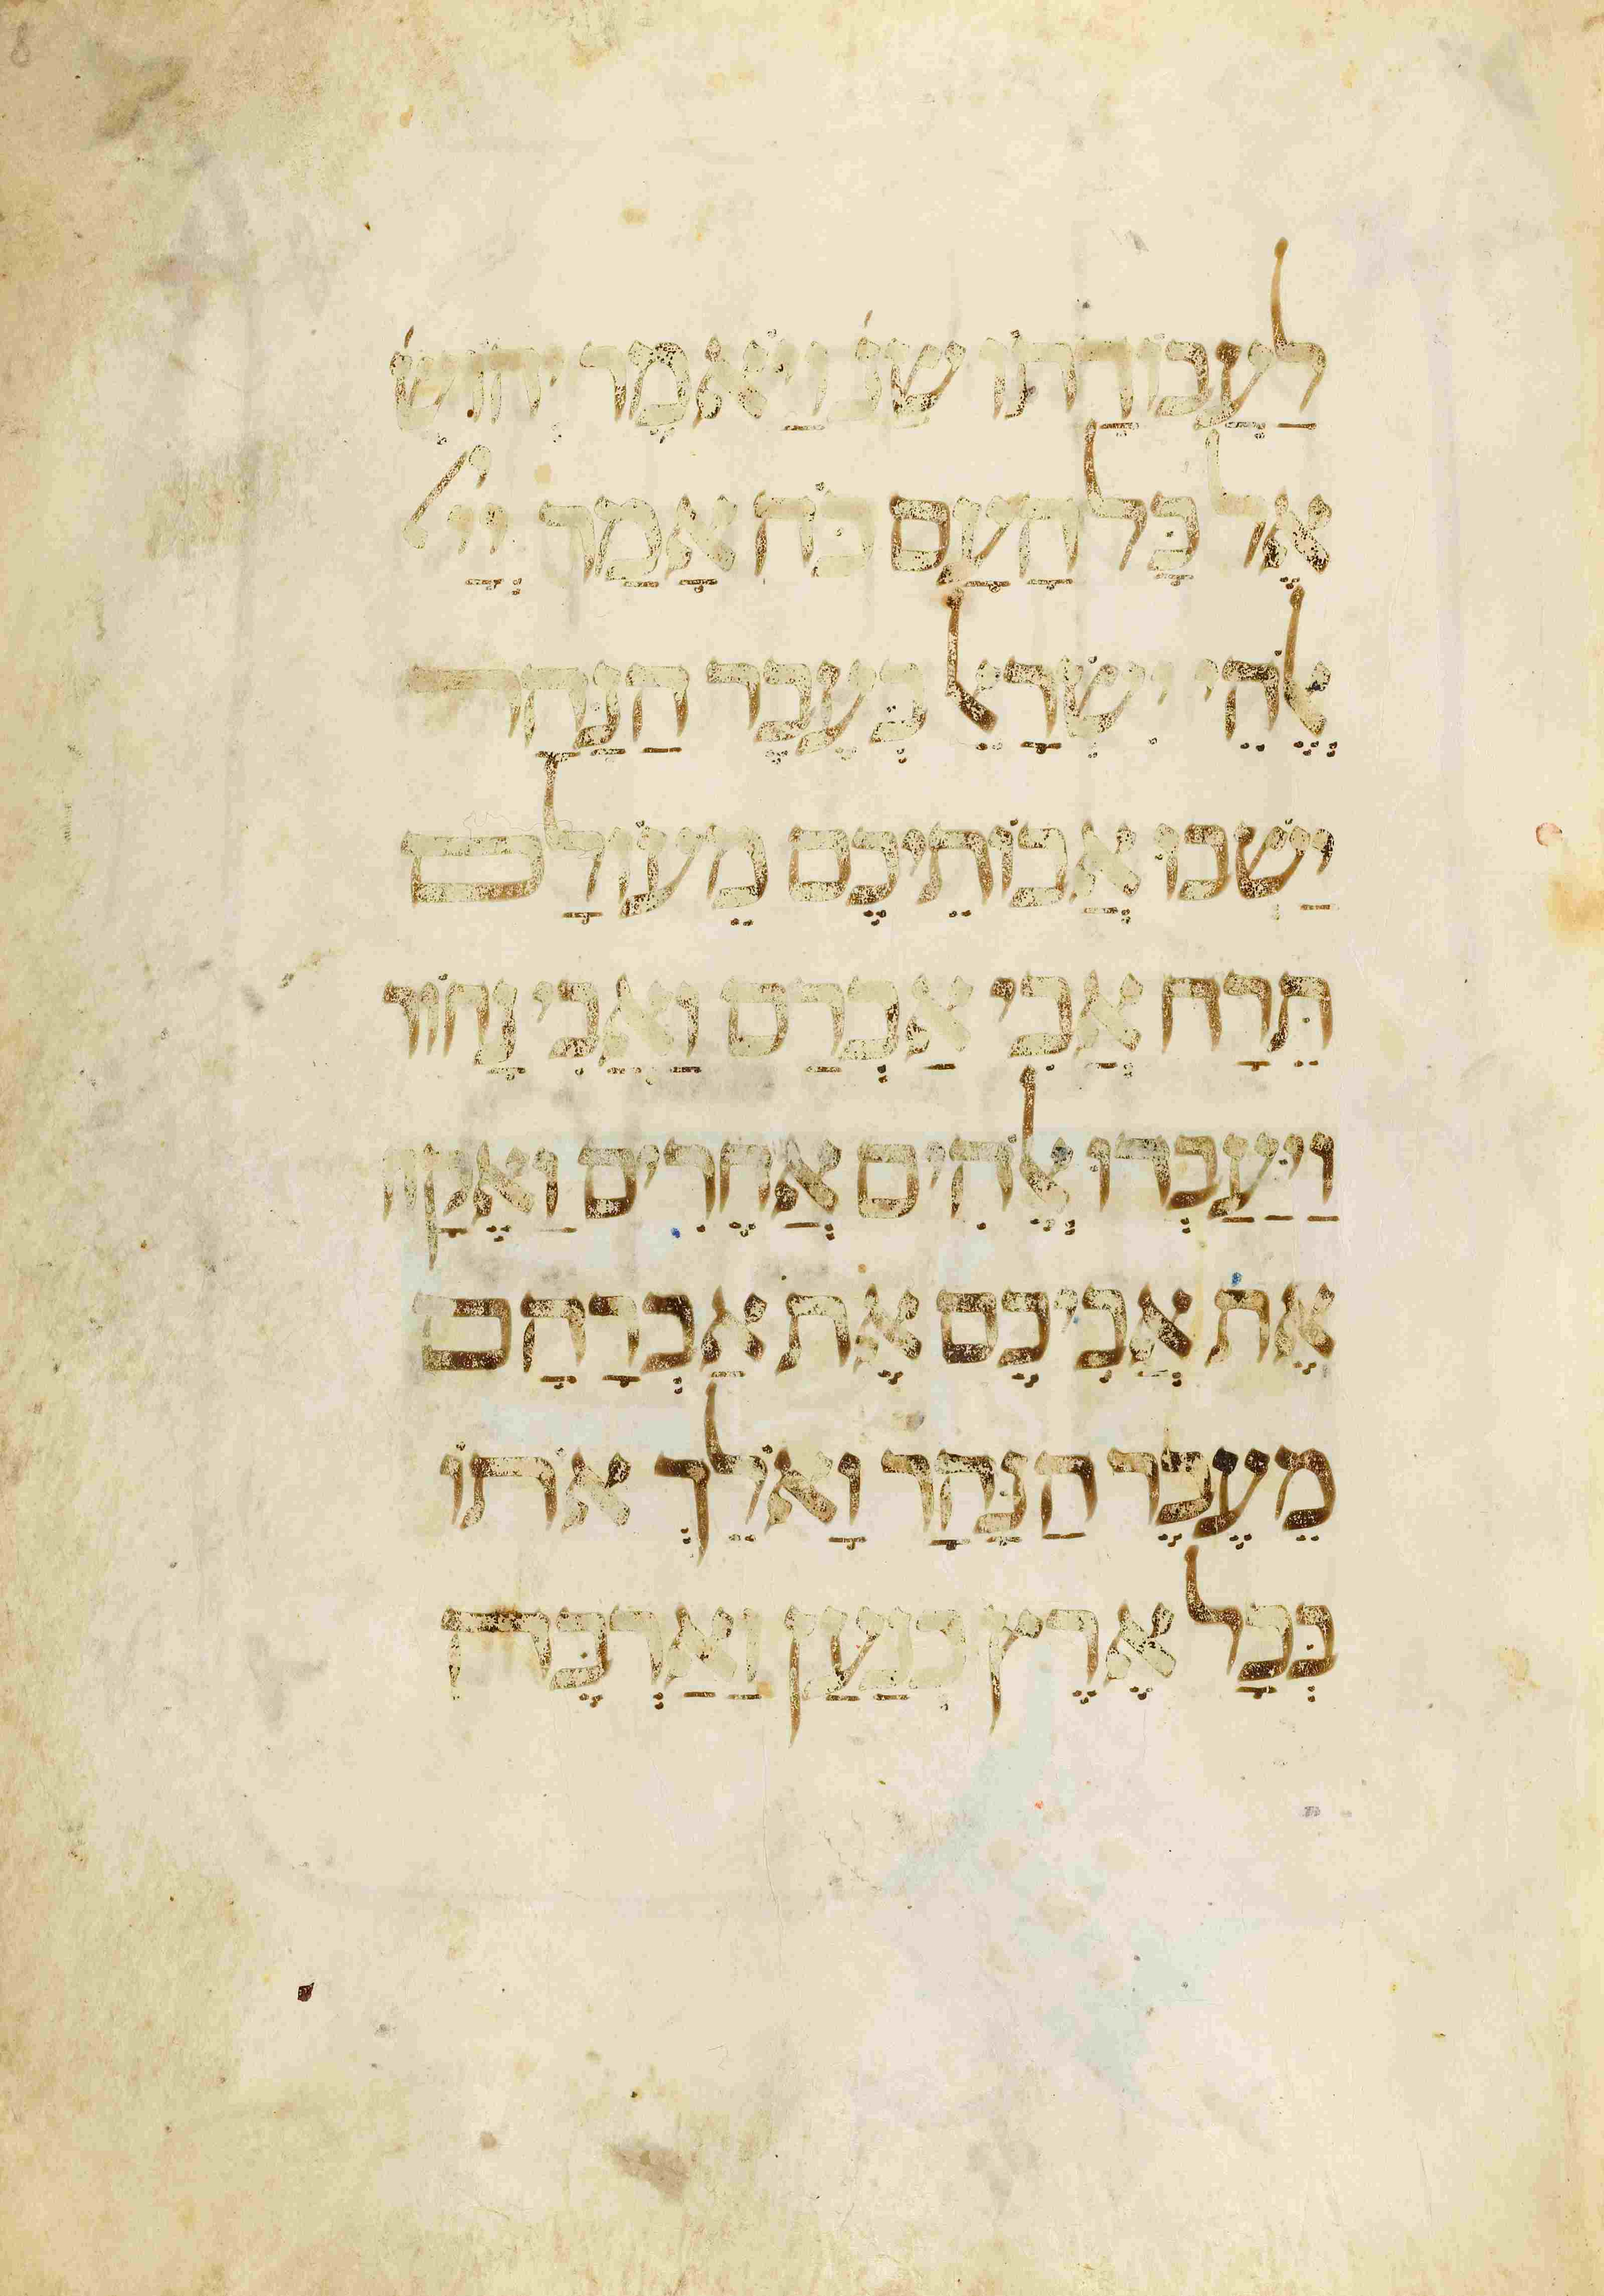 לַעֲבוֹדָתוֹ שנ׳ וַיֹּאמֶר יְהוֹשֻׁ׳
אֶל כָּל הָעָם כֹּה אָמַר יְיָ׳
אֱלֹהֵי יִשְׂרָאֵל בְּעֵבֶר הַנָּהָר
יַשְׁבוּ אֲבוֹתֵיכֶם מֵעוֹלָם
תֵּרַח אֲבִי אַבְרָם וַאֲבִי נָחוֹר
וַיַּעַבְדוּ אֱלֹהִים אֲחֵרִים וָאֶקַח
אֶת אֲבִיכֶם אֶת אַבְרָהָם
מֵעֵבֶר הַנָּהָר וָאוֹלֵךְ אֹתוֹ
בְּכָל אֶרֶץ כְּנַעַן וַאַרְבֶּה